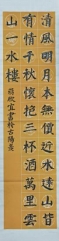 清風明月本無價近水遠山皆
有情千秋懷抱三杯酒萬里雲
山一水樓